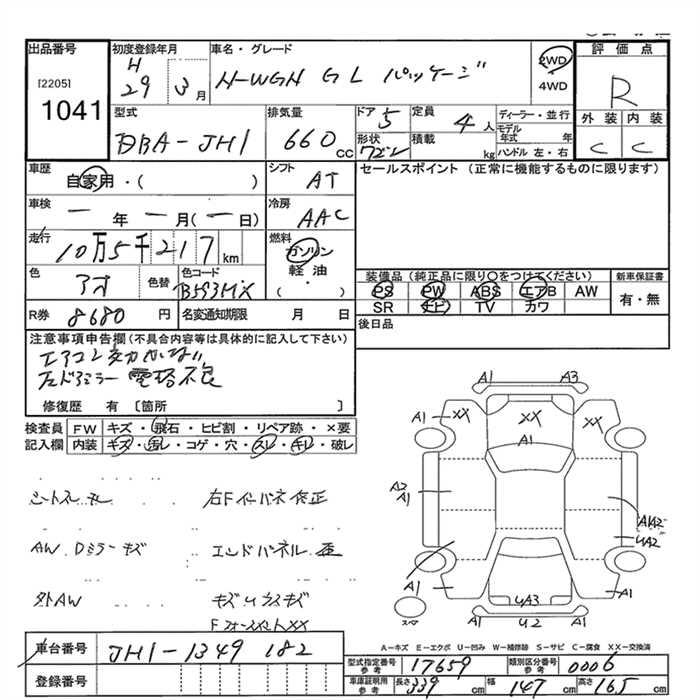 出品番号 初度登録年月 車名・グレード 評価点
[2205] 1041
H 29 3月
N-WGN GL パッケージ
2WD
4WD
R
外装 内装
C C
型式 排気量 ドア 5 定員 4人 ディーラー・並行
DBA-JH1 660 CC 形状 ワゴン 積載 kg モデル年式 年
ハンドル 左・右
車歴 自家用・( ) シフト AT
セールスポイント (正常に機能するものに限ります)
車検 一年一月(一日) 冷房 AAC
走行 10万5千217km 燃料 ガソリン
軽油
( )
色 アオ 色替 色コード B593MX
装備品 (純正品に限り○をつけてください) 新車保証書
PS PW ABS エアB AW 有・無
SR ナビ TV カワ
R券 8680円 名変通知期限 月 日
後日品
注意事項申告欄(不具合内容等は具体的に記入して下さい)
エアコン効かない
左ドアミラー電格不良
修復歴 有 〔箇所 〕
検査員 FW キズ・飛石・ヒビ割・リペア跡・×要
記入欄 内装 キズ・汚レ・コゲ・穴・スレ・キレ・破レ
A1 A3
A1 XX XX XX A1
A1
A2
A1
A1A2
UA2
A1 UA3 A1
U2
スペア
右Fインパネ修正
AW.Dミラーキズ エンドパネル歪
外AW
A-キズ E-エクボ U-凹み W-補修跡 S-サビ C-腐食 XX-交換済
車台番号 JH1-1349182
登録番号
型式指定番号 参考 17659 類別区分番号 参考 0006
車庫証明用 参考 長さ 339cm 幅 147cm 高さ 165cm